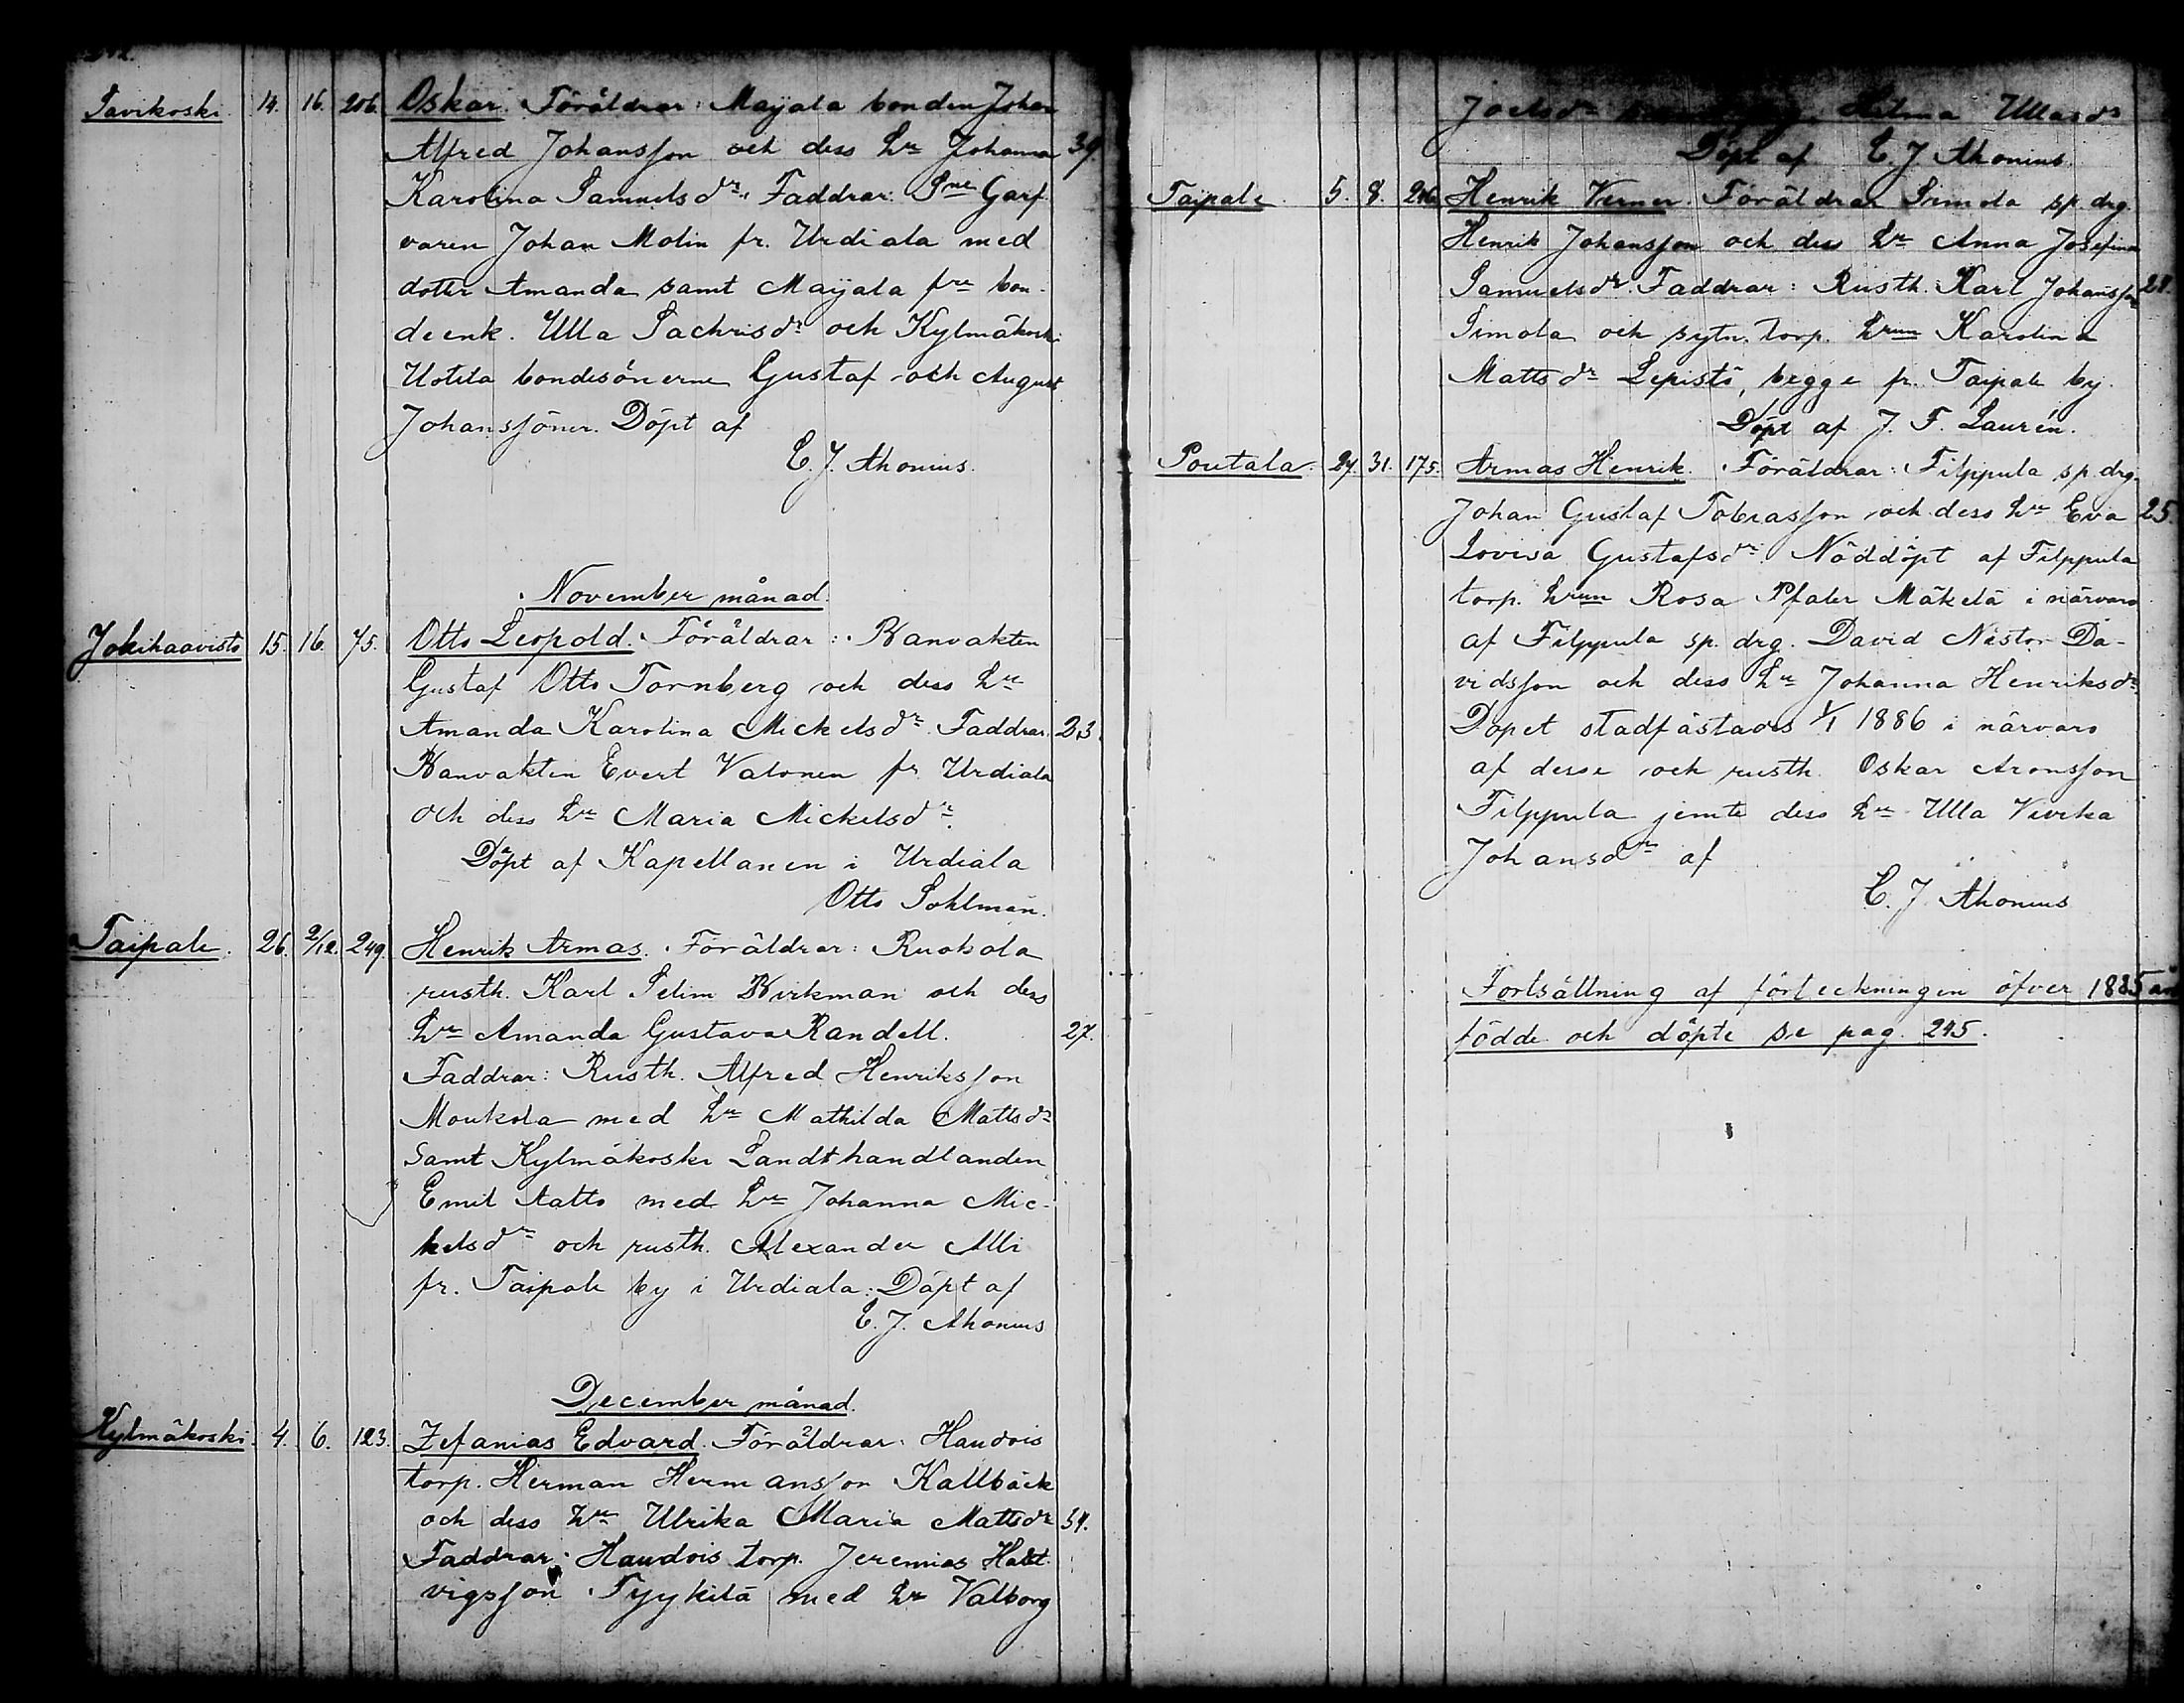 Savikoski. 14. 16. 206. Oskar. Föräldrar: Maijala bonden Johan
Alfred Johansson och dess hu Johanna 39.
Karolina Samuelsdr. Faddrar: Sne Garf
varen Johan Molin fr. Urdiala med
dotter Amanda samt Maijala fre bon-
deenk. Ulla Sachrisdr och Kylmäkoski
Uotila bondesönerne Gustaf och August
Johanssöner. Döpt af
E. J. Ahonius.
November månad.
Jokihaavisto 15. 16. 75. Otto Leopold. Föräldrar: Banvakten
Gustaf Otto Tornberg och dess hu
Amanda Karolina Mickelsdr. Faddrar. 23.
Banvakten Evert Valonen fr. Urdiala
och dess hu Maria Mickelsdr.
Döpt af Kapellanen i Urdiala
Otto Sohlman.
Taipale. 26. 2/12. 249. Henrik Armas. Föräldrar: Ruokola
rusth. Karl Selim Birkman och dess
hu Amanda Gustava Randell. 27.
Faddrar: Rusth. Alfred Henriksson
Moukola med hu Mathilda Mattsdr
samt Kylmäkoski Landthandlanden
Emil Aatto med hu Johanna Mic-
kelsdr och rusth. Alexander Alli
fr. Taipale by i Urdiala. Döpt af
E. J. Ahonius
December månad.
Kylmäkoski. 4. 6. 123. Zefanias Edvard. Föräldrar: Haudois
torp. Herman Hermansson Kallbäck
och dess hu Ulrika Maria Mattsdr 34.
Faddrar: Haudois torp. Jeremias Hart
vigsson Tyykilä med hu Valborg
Joelsdr Hilma Ullasdr
Döpt af E. J. Ahonius.
Taipale. 5. 8. 246. Henrik Verner. Föräldrar Simola sp. drg.
Henrik Johansson och dess hu Anna Josefina
Samuelsdr. Faddrar: Rusth. Karl Johansson 28.
Simola och sytn. torp. hrun Karolina
Mattsdr Lepistö, begge fr. Taipale by.
Döpt af J. F. Laurén.
Poutala. 27. 31. 175. Armas Henrik. Föräldrar: Filppula sp. drg.
Johan Gustaf Tobiasson och dess hu Eva 25.
Lovisa Gustafsdr. Nöddöpt af Filppula
torp. hrun Rosa Pfaler Mäkelä i närvaro
af Filppula sp. drg. David Nestor Da-
vidsson och dess hu Johanna Henriksdr.
Dopet stadfästades 1/1 1886 i närvaro
af desse och rusth. Oskar Aronsson
Filppula jemte dess hu Ulla Vivika
Johansdr af
E. J. Ahonius
Fortsättning af förteckningen öfver 1885 år
födde och döpte se pag. 245.